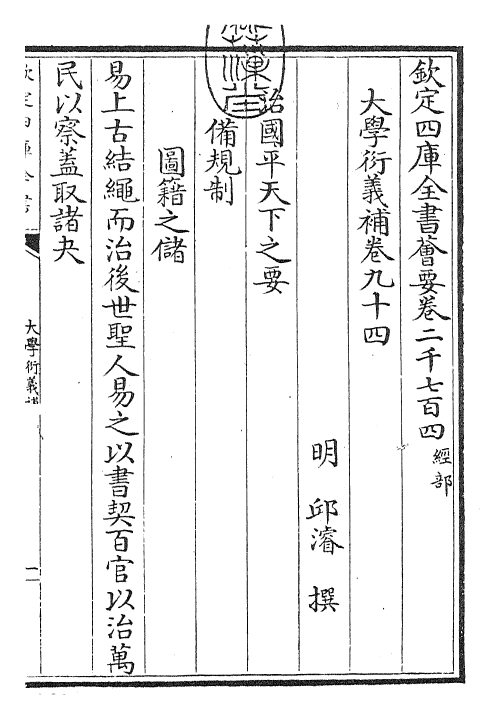 欽定四庫全書薈要卷二千七百四 經部
大學衍義補卷九十四
明 邱濬 撰
治國平天下之要
備規制
圖籍之儲
易上古結繩而治後世聖人易之以書契百官以治萬
民以察蓋取諸夬
大學衍義補